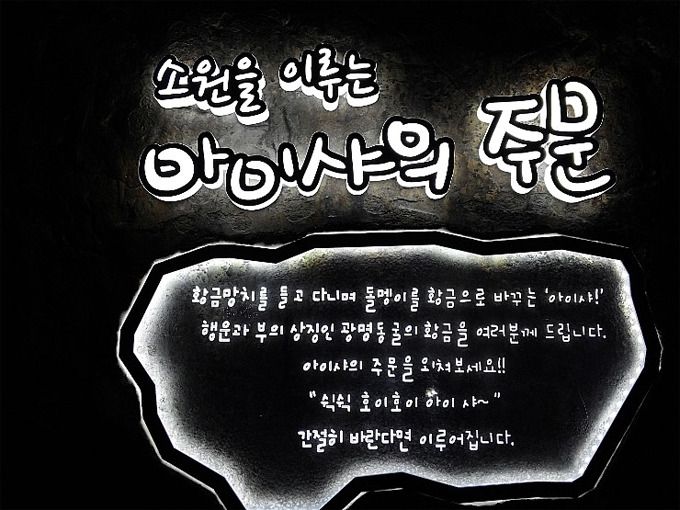 소원을 이루는
아이샤의 주문
황금망치를 들고 다니며 돌멩이를 황금으로 바꾸는 '아이샤!'
행운과 부의 상징인 광명동굴의 황금을 여러분께 드립니다.
아이샤의 주문을 외쳐보세요!!
"쉭쉭 호이호이 아이 샤~"
간절히 바란다면 이루어집니다.